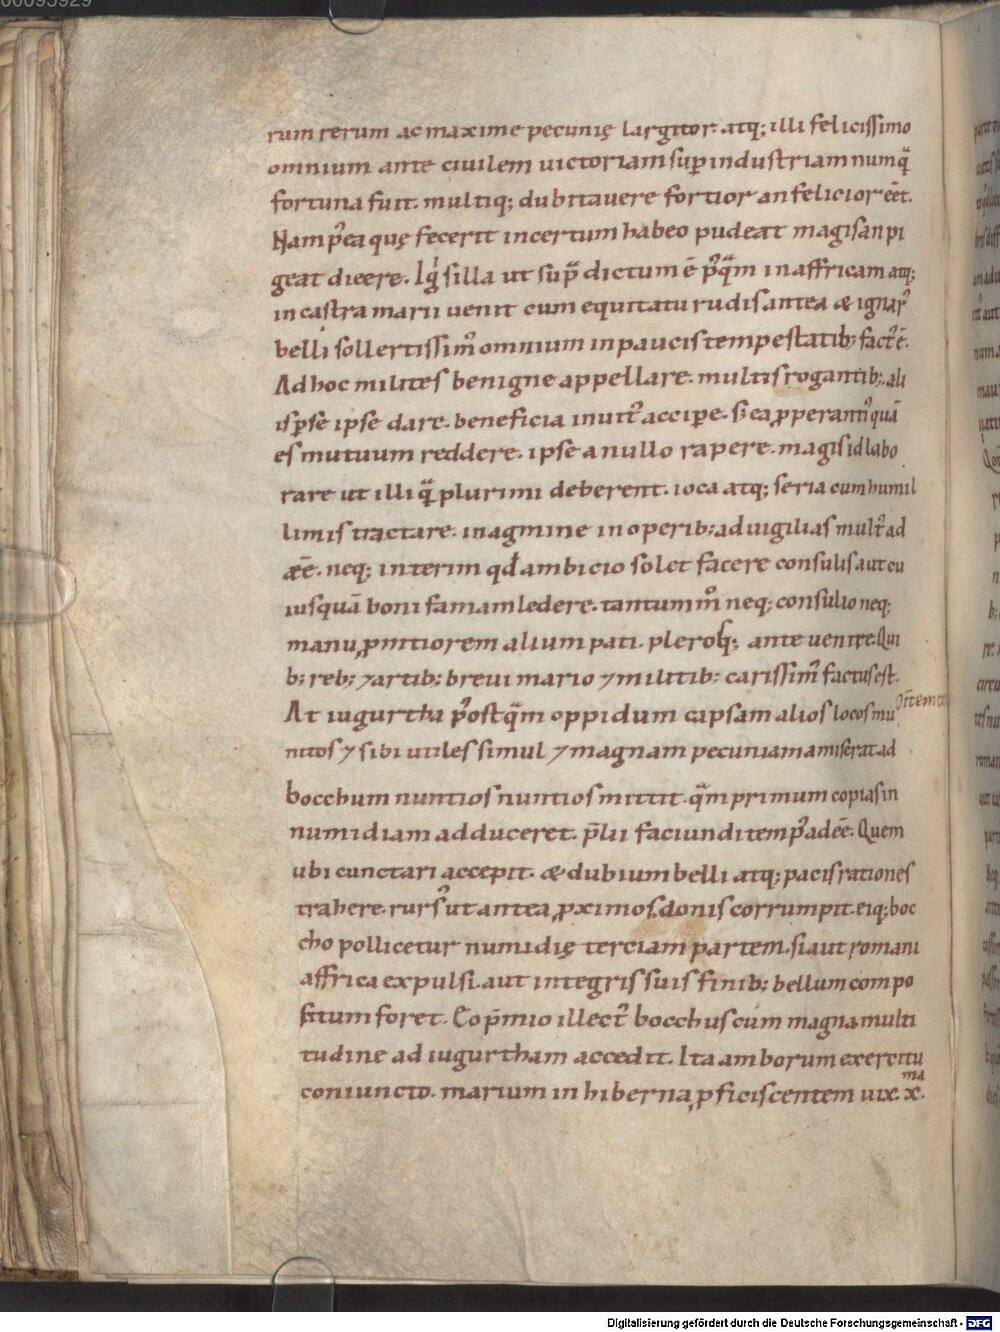 rum rerum ac maxime pecunię largitor. atq; illi felicissimo
omnium ante ciuilem uictoriam sup̱ industriam numq̄
fortuna fuit. multiq; dubitauere fortior an felicior eēt.
Nam p̄ea quę fecerit incertum habeo pudeat magis an pi
geat dicere. Igͥ silla ut sup̄ dictum ē p̄q̄m in affricam atq;
in castra marii uenit cum equitatu rudis antea & ignar᷒
belli sollertissim᷒ omnium in paucis tempestatib; fact᷒ ē.
Ad hoc milites benigne appellare. multis rogantib;. ali
is p̱ se ipse dare. beneficia inuit᷒ accipe. s; ea ꝓperanti᷒ quā
es mutuum reddere. ipse a nullo rapere. magis id labo
rare ut illi q̄ plurimi deberent. ioca atq; seria cum humil
limis tractare. in agmine in operib; ad uigilias mult᷒ ad
eē. neq; interim qd̄ ambicio solet facere consulis aut cu
iusquā boni famam ledere. tantum m̊ neq; consulio neq;
manu ꝓmtiorem alium pati. plerosq; ante uenire. Qui
b; reb; ⁊ artib; breui mario ⁊ militib; carissim᷒ factus est.
At iugurtha p̄ostq̄m oppidum capsam alios locos mu
nitos ⁊ sibi utiles simul ⁊ magnam pecuniam amiserat ad
bocchum nuntios nuntios mittit. q̄m primum copias in
numidiam adduceret. p̄lii faciundi temp᷒ adeē. Quem
ubi cunctari accepit. & dubium belli atq; pacis rationes
trahere. rurs᷒ ut antea ꝓximos. donis corrumpit. eiq; boc
cho pollicetur numidię terciam partem. si aut romani
affrica expulsi. aut integris suis finib; bellum compo
situm foret. Eo p̄mio illect᷒ bocchus cum magna multi
tudine ad iugurtham accedit. Ita amborum exercitu
coniuncto. marium in hiberna ꝓficiscentem uix. x.ma